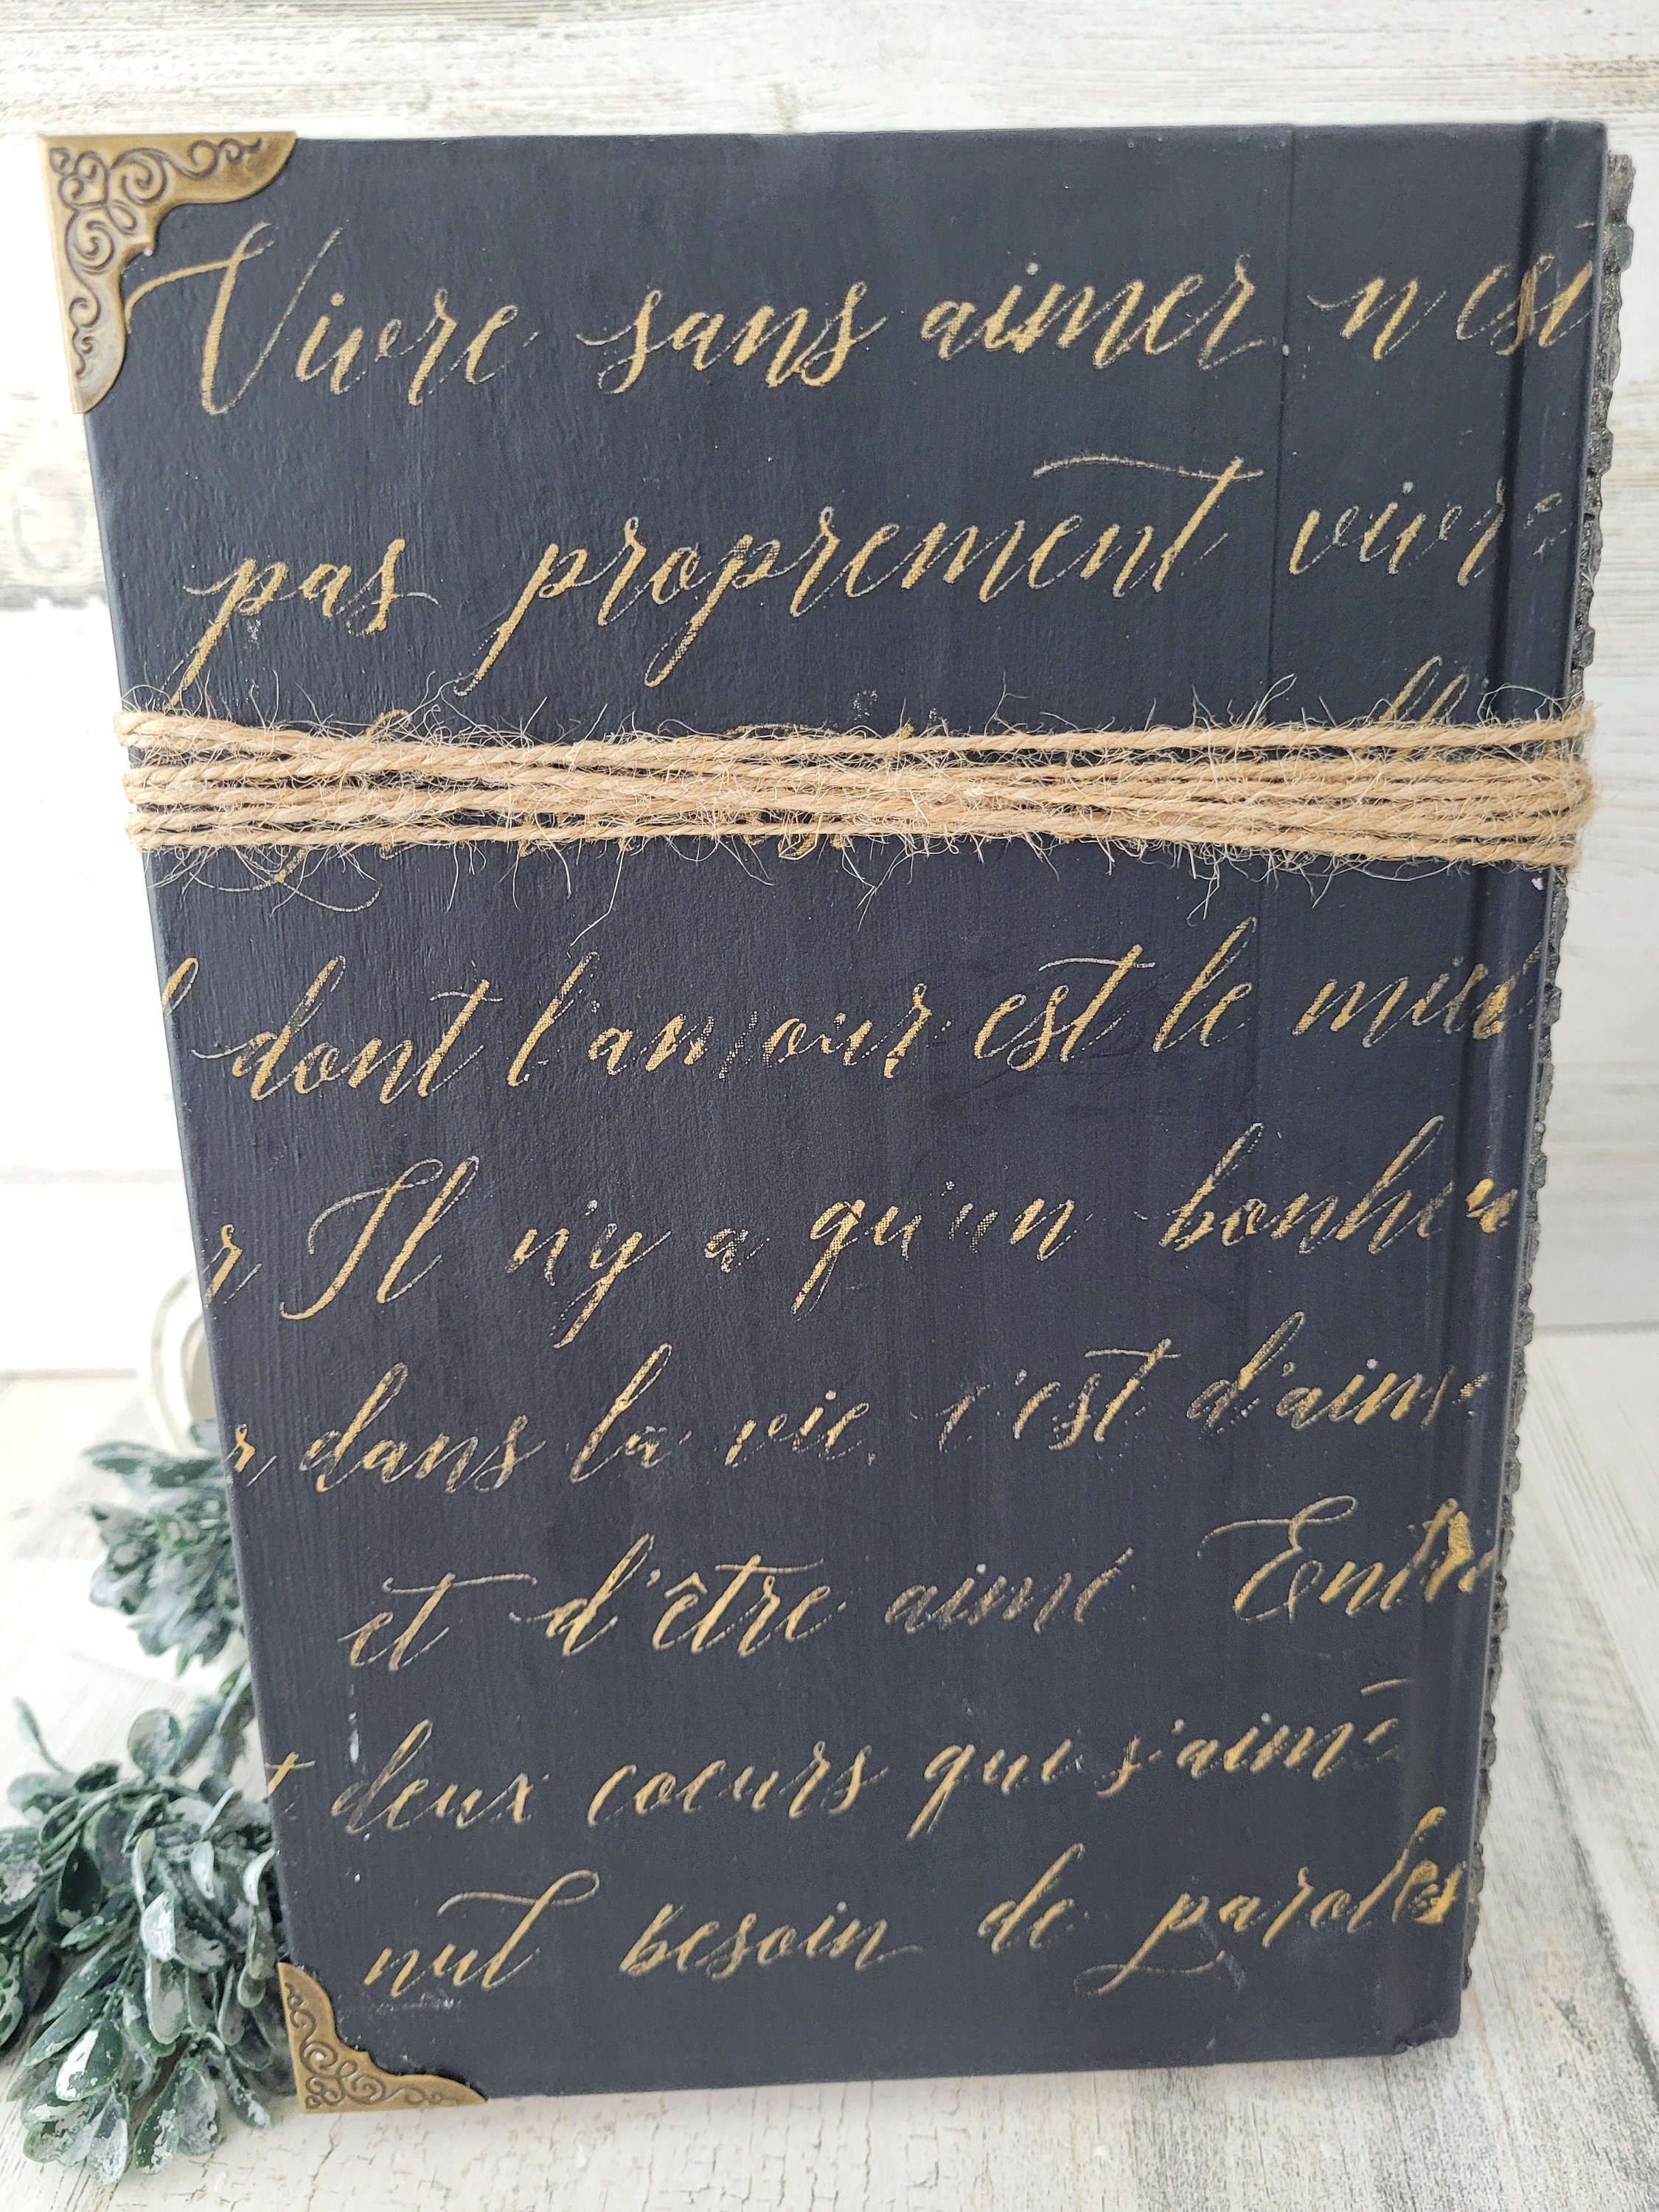 Vivre sans aimer n'est
pas proprement vivre
l dont l'amour est le miel
r Il n'y a qu'un bonheu
r dans la vie, c'est d'aime
et d'être aimé Entre
t deux coeurs qui s'aime
nul besoin de paroles